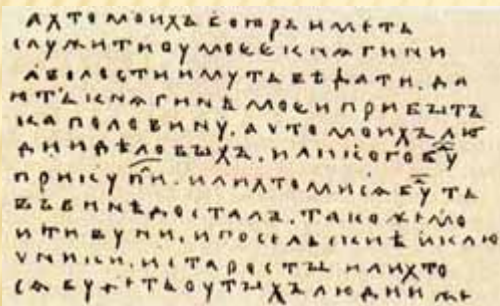 а хто моихъ бояръ иметь
служити у моее кнѧгини
а волости имуть вѣдати. да
ють кнѧгинѣ моеи прибытъ
ка половину. а что моихъ лю
дии дѣловыхъ. или кого бу
прикупи. или хто ми сѧ буть
въ винѣ досталъ. такоже мо
и тивуни. и посельскиѣ и клю
чники. и старосты или хто
сѧ будеть у тыхъ людии